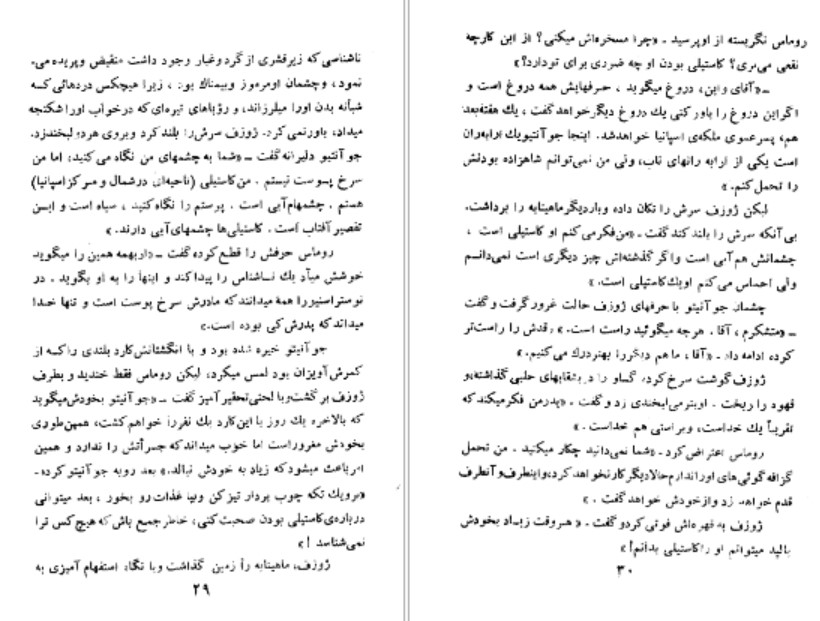 ناشناسی که زیرقشری از گرد و غبار وجود داشت منقبض و پریده می‌
نمود، و چشمان او مرموز و بیمناک بود، زیرا هیچکس دردهائی که
شبانه بدن او را میلرزاند، و رؤیاهای تیره‌ای که درخواب او را شکنجه
میداد، باور نمی‌کرد. ژوزف سرش را بلند کرد و بروی مرد، لبخند زد.
جو آنتیو دلیرانه گفت ــ «شما به چشمهای من نگاه می کنید، اما من
سرخ پوست نیستم. من کاستیلی (ناحیه‌ای درشمال و مرکز اسپانیا)
هستم. چشمهام آبی است. پوستم را نگاه کنید، سیاه است و این
تقصیر آفتاب است. کاستیلی‌ها چشمهای آبی دارند.»
روماس حرفش را قطع کرده گفت ــ «او بهمه همین را میگوید
خوشش میآید یك ناشناس را پیدا کند و اینها را به او بگوید. در
نوستراسنیورا همه میدانند که مادرش سرخ پوست است و تنها خدا
میداند که پدرش کی بوده است.»
جو آنیتو خیره شده بود و با انگشتانش کارد بلندی را که از
کمرش آویزان بود لمس میکرد، لیکن روماس فقط خندید و بطرف
ژوزف برگشت و با لحنی تحقیر آمیز گفت ــ «جو آنیتو بخودش میگوید
که بالاخره یك روز با این کارد یك نفر را خواهم کشت، همین طوری
بخودش مغرور است اما خوب میداند که جرأتش را ندارد و همین
امر باعث میشود که زیاد به خودش نبالد.» بعد رو به جو آنیتو کرد ــ
«برو یك تکه چوب بردار تیز کن و بیا غذات رو بخور، بعد میتوانی
درباره‌ی کاستیلی بودن صحبت کنی، خاطر جمع باش که هیچ کس ترا
نمی‌شناسد!»
ژوزف، ماهیتابه را زمین گذاشت و با نگاه استفهام آمیزی به
۲۹
روماس نگریسته از او پرسید ــ «چرا مسخره‌اش میکنی؟ از این کار چه
نفعی می‌بری؟ کاستیلی بودن او چه ضرری برای تو دارد؟»
ــ «آقای واین، دروغ میگوید، حرفهایش همه دروغ است و
اگر این دروغ را باور کنی یك دروغ دیگر خواهد گفت، یك هفته بعد
هم، پسر عموی ملکه‌ی اسپانیا خواهد شد. اینجا جو آنتیو یك ارابه‌ران
است یکی از ارابه رانهای ناب، ولی من نمی‌توانم شاهزاده بودنش
را تحمل کنم.»
لیکن ژوزف سرش را تکان داده و بار دیگر ماهیتابه را برداشت.
بی‌آنکه سرش را بلند کند گفت ــ «من فکر می کنم او کاستیلی است،
چشمانش هم آبی است و اگر گذشته‌اش چیز دیگری است نمی‌دانم
ولی احساس می کنم او یك کاستیلی است.»
چشمان جو آنیتو با حرفهای ژوزف حالت غرور گرفت و گفت
ــ «متشکرم، آقا. هرچه میگوئید راست است.» و قدش را راست‌تر
کرد، ادامه داد ــ «آقا، ما هم دیگر را بهتر درك می کنیم.»
ژوزف گوشت سرخ کرده گساو را در بشقابهای حلبی گذاشته، و
قهوه را ریخت. او بنرمی لبخندی زد و گفت ــ «پدر من فکر میکند که
تقریباً یك خداست، و براستی هم خداست.»
روماس اعتراض کرد ــ «شما نمی‌دانید چکار میکنید. من تحمل
گزافه گوئی‌های او را ندارم حالا دیگر کار نخواهد کرد، و اینطرف و آنطرف
قدم خواهد زد و از خودش خواهد گفت.»
ژوزف به قهوه‌اش فوتی کرد و گفت ــ «هر وقت زیاد بخودش
بالید میتوانم او را کاستیلی بدانم!»
۳۰